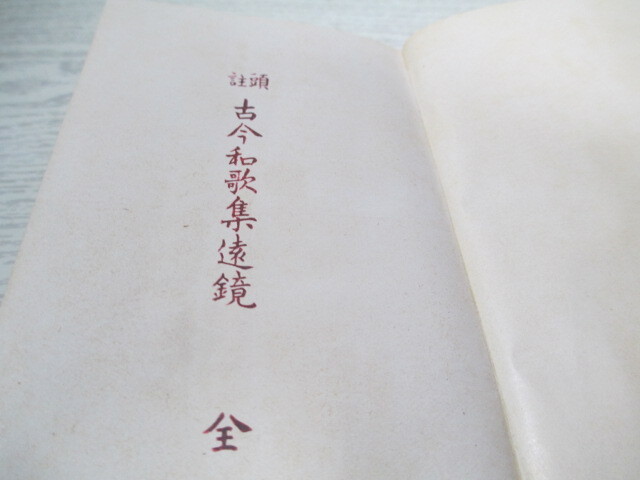 頭註
古今和歌集遠鏡
全